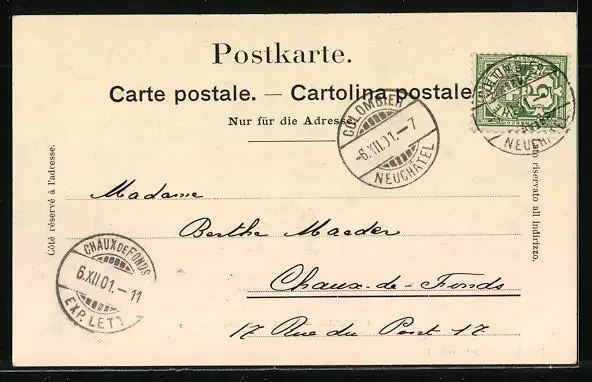 Postkarte.
Carte postale. — Cartolina postale
Nur für die Adresse
COLOMBIER
-6.XII.01.-7
NEUCHATEL
COLOMBIER
NEUCHATEL
5
Côté réservé à l'adresse.
Lato riservato all indirizzo.
Madame
Berthe Maeder
Chaux-de-Fonds
17 Rue du Pont 17
CHAUX DE FONDS
6.XII.01.-11
EXP. LETT.